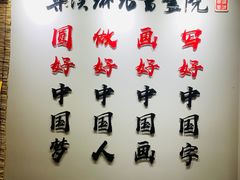 写好中国字
画好中国画
做好中国人
圆好中国梦